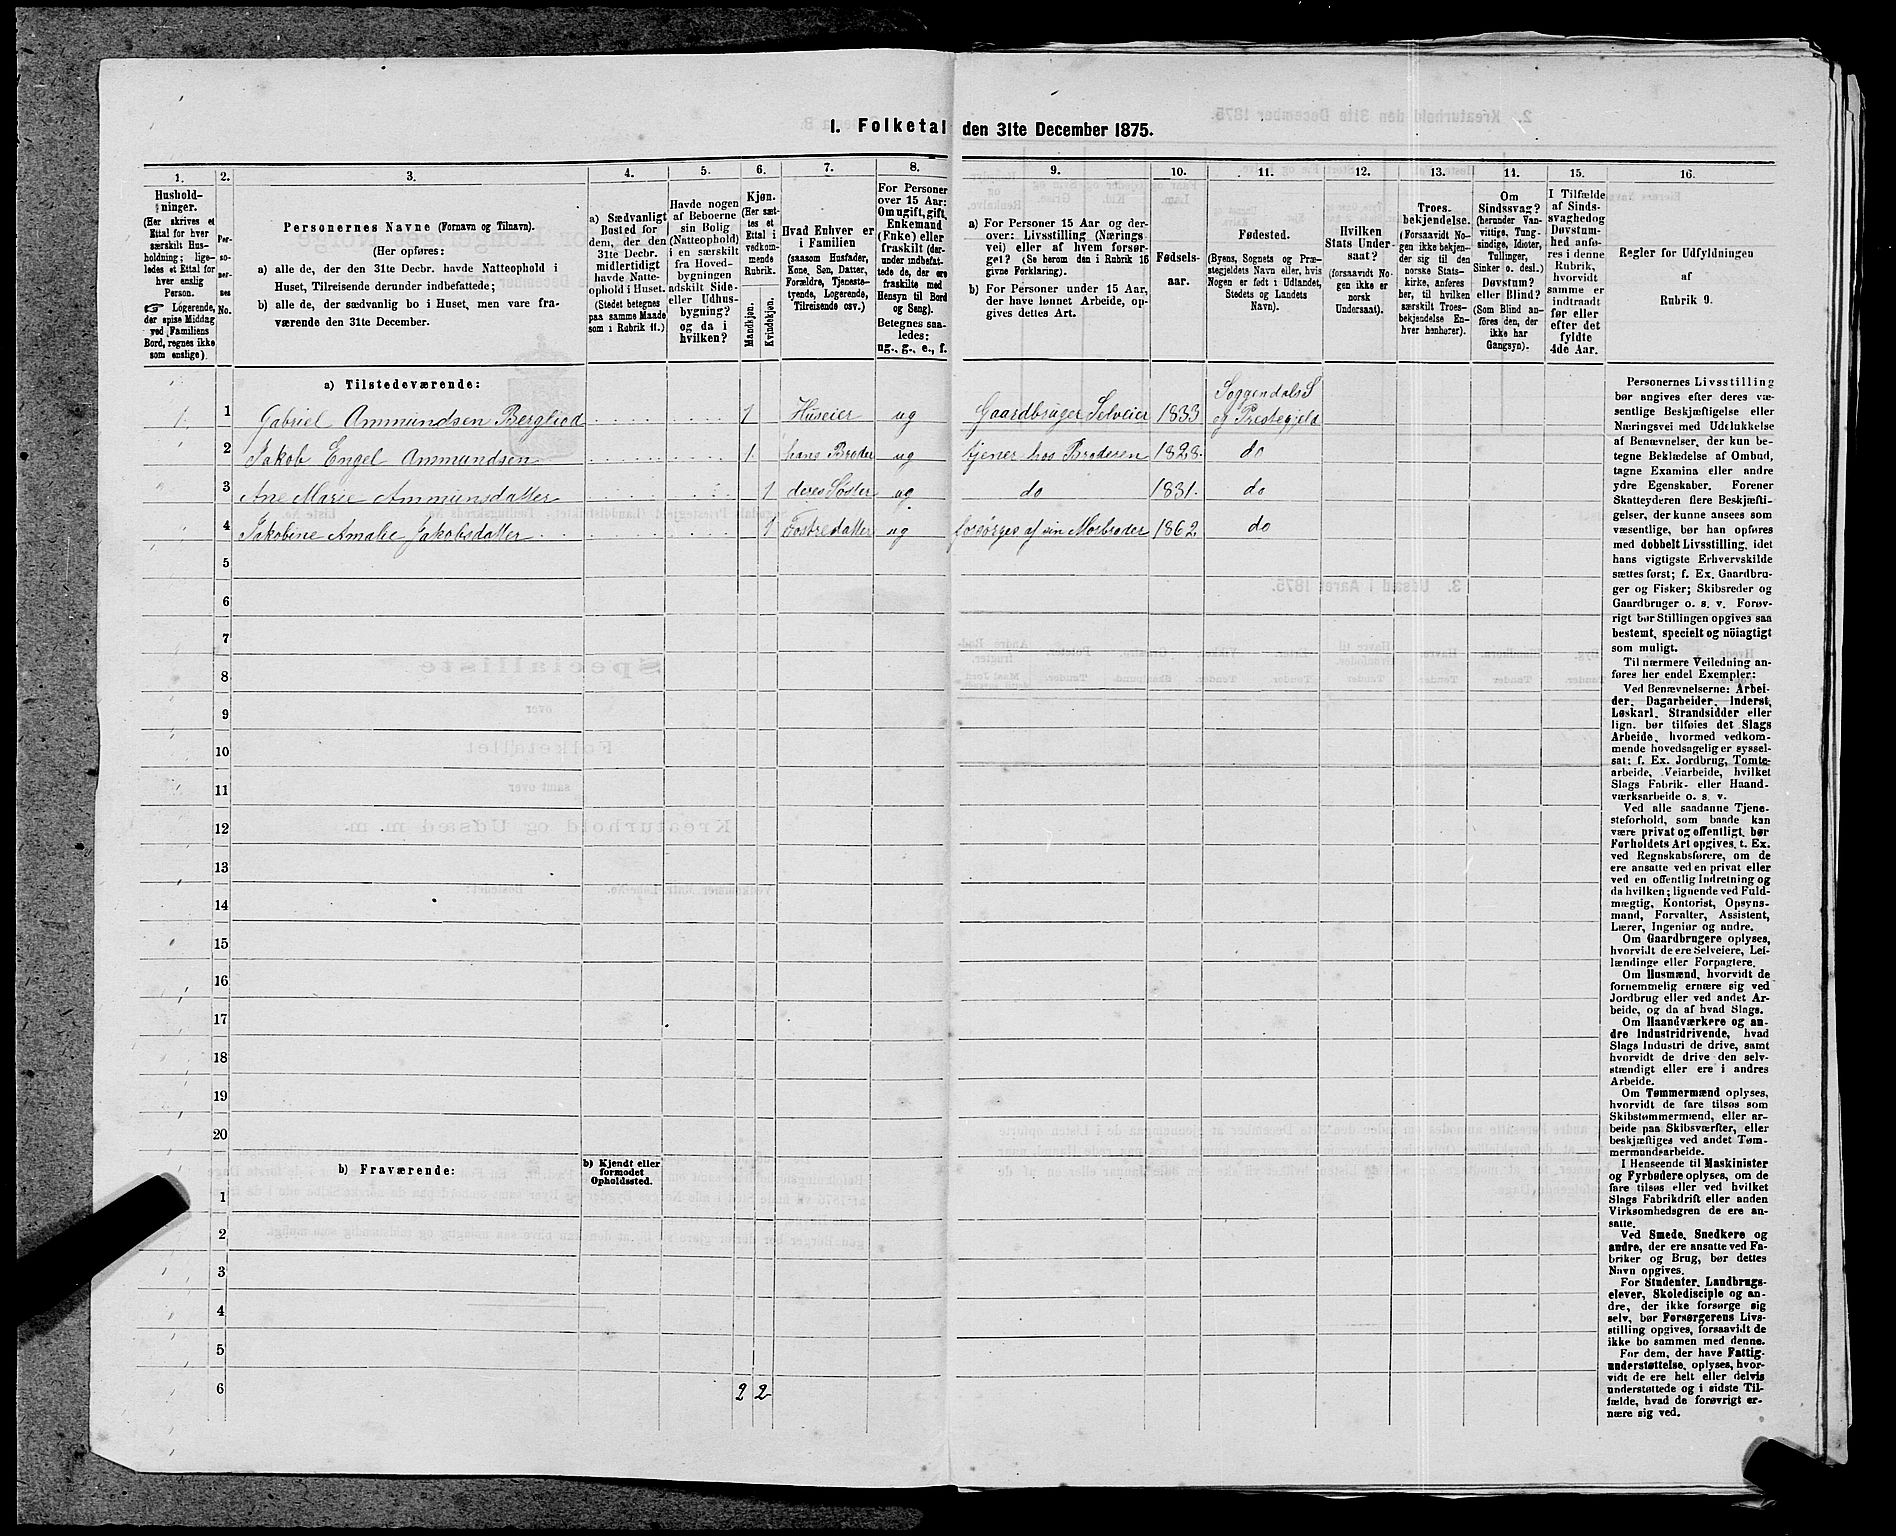 1. Folketal den 31te December 1875.
1. 2. 3. 4. 5. 6. 7. 8. 9. 10. 11. 12. 13. 14. 15. 16.
Hushold-
ninger.
(Her skrives et
Ettal for hver
særskilt Hus-
holdning; lige-
ledes et Ettal for
hver enslig
Person.
☞ Logerende,
der spise Middag
ved Familiens
Bord, regnes ikke
som enslige).
Per-
so-
ner-
nes
No.
Personernes Navne (Fornavn og Tilnavn).
(Her opføres:
a) alle de, der den 31te Decbr. havde Natteophold i
Huset, Tilreisende derunder indbefattede;
b) alle de, der sædvanlig bo i Huset, men vare fra-
værende den 31te December.
a) Sædvanligt
Bosted for
dem, der den
31te Decbr.
midlertidigt
havde Natte-
ophold i Huset.
(Stedet betegnes
paa samme Maade
som i Rubrik 11.)
Havde nogen
af Beboerne
sin Bolig
(Natteophold)
i en særskilt
fra Hoved-
bygningen
adskilt Side-
eller Udhus-
bygning?
og da i
hvilken?
Kjøn.
(Her sæt-
tes et
Ettal i
vedkom-
mende
Rubrik.
Mandkjøn.
Kvindekjøn.
Hvad Enhver er
i Familien
(saasom Husfader,
Kone, Søn, Datter,
Forældre, Tjeneste-
tyende, Logerende,
Tilreisende osv.)
For Personer
over 15 Aar:
Om ugift, gift,
Enkemand
(Enke) eller
fraskilt (der-
under indbefat-
tede de, der ere
fraskilte med
Hensyn til Bord
og Seng).
Betegnes saa-
ledes:
ug., g., e., f.
a) For Personer 15 Aar og der-
over: Livsstilling (Nærings-
vei) eller af hvem forsør-
get? (Se herom den i Rubrik 16
givne Forklaring).
b) For Personer under 15 Aar,
der have lønnet Arbeide, op-
gives dettes Art.
Fødsels-
aar.
Fødested.
(Byens, Sognets og Præ-
stegjeldets Navn eller, hvis
Nogen er født i Udlandet,
Stedets og Landets
Navn).
Hvilken
Stats Under-
saat?
(forsaavidt No-
gen ikke er
norsk
Undersaat).
Troes-
bekjendelse.
(Forsaavidt No-
gen ikke bekjen-
der sig til den
norske Stats-
kirke, anføres
her, til hvilken
særskilt Troes-
bekjendelse En-
hver henhører).
Om
Sindssvag?
(herunder Van-
vittige, Tung-
sindige, Idioter,
Tullinger,
Sinker o. desl.)
Døvstum?
eller Blind?
(Som Blind an-
føres den, der
ikke har
Gangsyn).
I Tilfælde
af Sinds-
svaghed og
Døvstum-
hed anfø-
res i denne
Rubrik,
hvorvidt
samme er
indtraadt
før eller
efter det
fyldte
4de Aar.
Regler for Udfyldningen
af
Rubrik 9.
a) Tilstedeværende:
1. 1 Gabriel Ammundsen Berglied 1 Huseier ug Gaardbruger Selveier 1833 Soggendals S
og Prestegjeld
2 Jakob Engel Ammundsen 1. hans Broder ug tjener hos Broderen 1828. do
3 Ane Marie Ammunsdatter 1 deres Søster ug do 1831. do
4 Jakobine Amalie Jakobsdatter 1 Fostredatter ug forsørges af sin Morbroder 1862 do
5
6
7
8
9
10
11
12
13
14
15
16
17
18
19
20
b) Fraværende:
b) Kjendt eller
formodet
Opholdssted.
1
2
3
4
5
6 2 2
Personernes Livsstilling
bør angives efter deres væ-
sentlige Beskjæftigelse eller
Næringsvei med Udelukkelse
af Benævnelser, der kun be-
tegne Beklædelse af Ombud,
tagne Examina eller andre
ydre Egenskaber. Forener
Skatteyderen flere Beskjæfti-
gelser, der kunne ansees som
væsentlige, bør han opføres
med dobbelt Livsstilling, idet
hans vigtigste Erhvervskilde
sættes først; f. Ex. Gaardbru-
ger og Fisker; Skibsreder og
Gaardbruger o. s. v. Forøv-
rigt bør Stillingen opgives saa
bestemt, specielt og nöiagtigt
som muligt.
Til nærmere Veiledning an-
føres her endel Exempler:
Ved Benævnelserne: Arbei-
der, Dagarbeider, Inderst,
Løskarl, Strandsidder eller
lign. bør tilføies det Slags
Arbeide, hvormed vedkom-
mende hovedsagelig er syssel-
sat: f. Ex. Jordbrug, Tomte-
arbeide, Veiarbeide, hvilket
Slags Fabrik- eller Haand-
værksarbeide o. s. v.
Ved alle saadanne Tjene-
steforhold, som baade kan
være privat og offentligt, bør
Forholdets Art opgives, t. Ex.
ved Regnskabsførere, om de
ere ansatte ved en privat eller
ved en offentlig Indretning og
da hvilken; lignende ved Fuld-
mægtig, Kontorist, Opsyns-
mand, Forvalter, Assistent,
Lærer, Ingeniør og andre.
Om Gaardbrugere oplyses,
hvorvidt de ere Selveiere, Lei-
lændinge eller Forpagtere.
Om Husmænd, hvorvidt de
fornemmelig ernære sig ved
Jordbrug eller ved andet Ar-
beide, og da af hvad Slags.
Om Haandværkere og an-
dre Industridrivende, hvad
Slags Industri de drive, samt
hvorvidt de drive den selv-
stændigt eller ere i andres
Arbeide.
Om Tømmermænd oplyses,
hvorvidt de fare tilsøs som
Skibstømmermænd, eller ar-
beide paa Skibsværfter, eller
beskjæftiges ved andet Tøm-
mermandsarbeide.
I Henseende til Maskinister
og Fyrbødere oplyses, om de
fare tilsøs eller ved hvilket
Slags Fabrikdrift eller anden
Virksomhedsgren de ere an-
satte.
Ved Smede, Snedkere og
andre, der ere ansatte ved Fa-
briker og Brug, bør dettes
Navn opgives.
For Studenter, Landbrugs-
elever, Skoledisciple og an-
dre, der ikke forsørge sig
selv, bør Forsørgerens Livs-
stilling opgives, forsaavidt de
ikke bo sammen med denne.
For dem, der have Fattig-
understøttelse, oplyses, hvor-
vidt de ere helt eller delvis
understøttede og i sidste Til-
fælde, hvad de forøvrigt er-
nære sig ved.